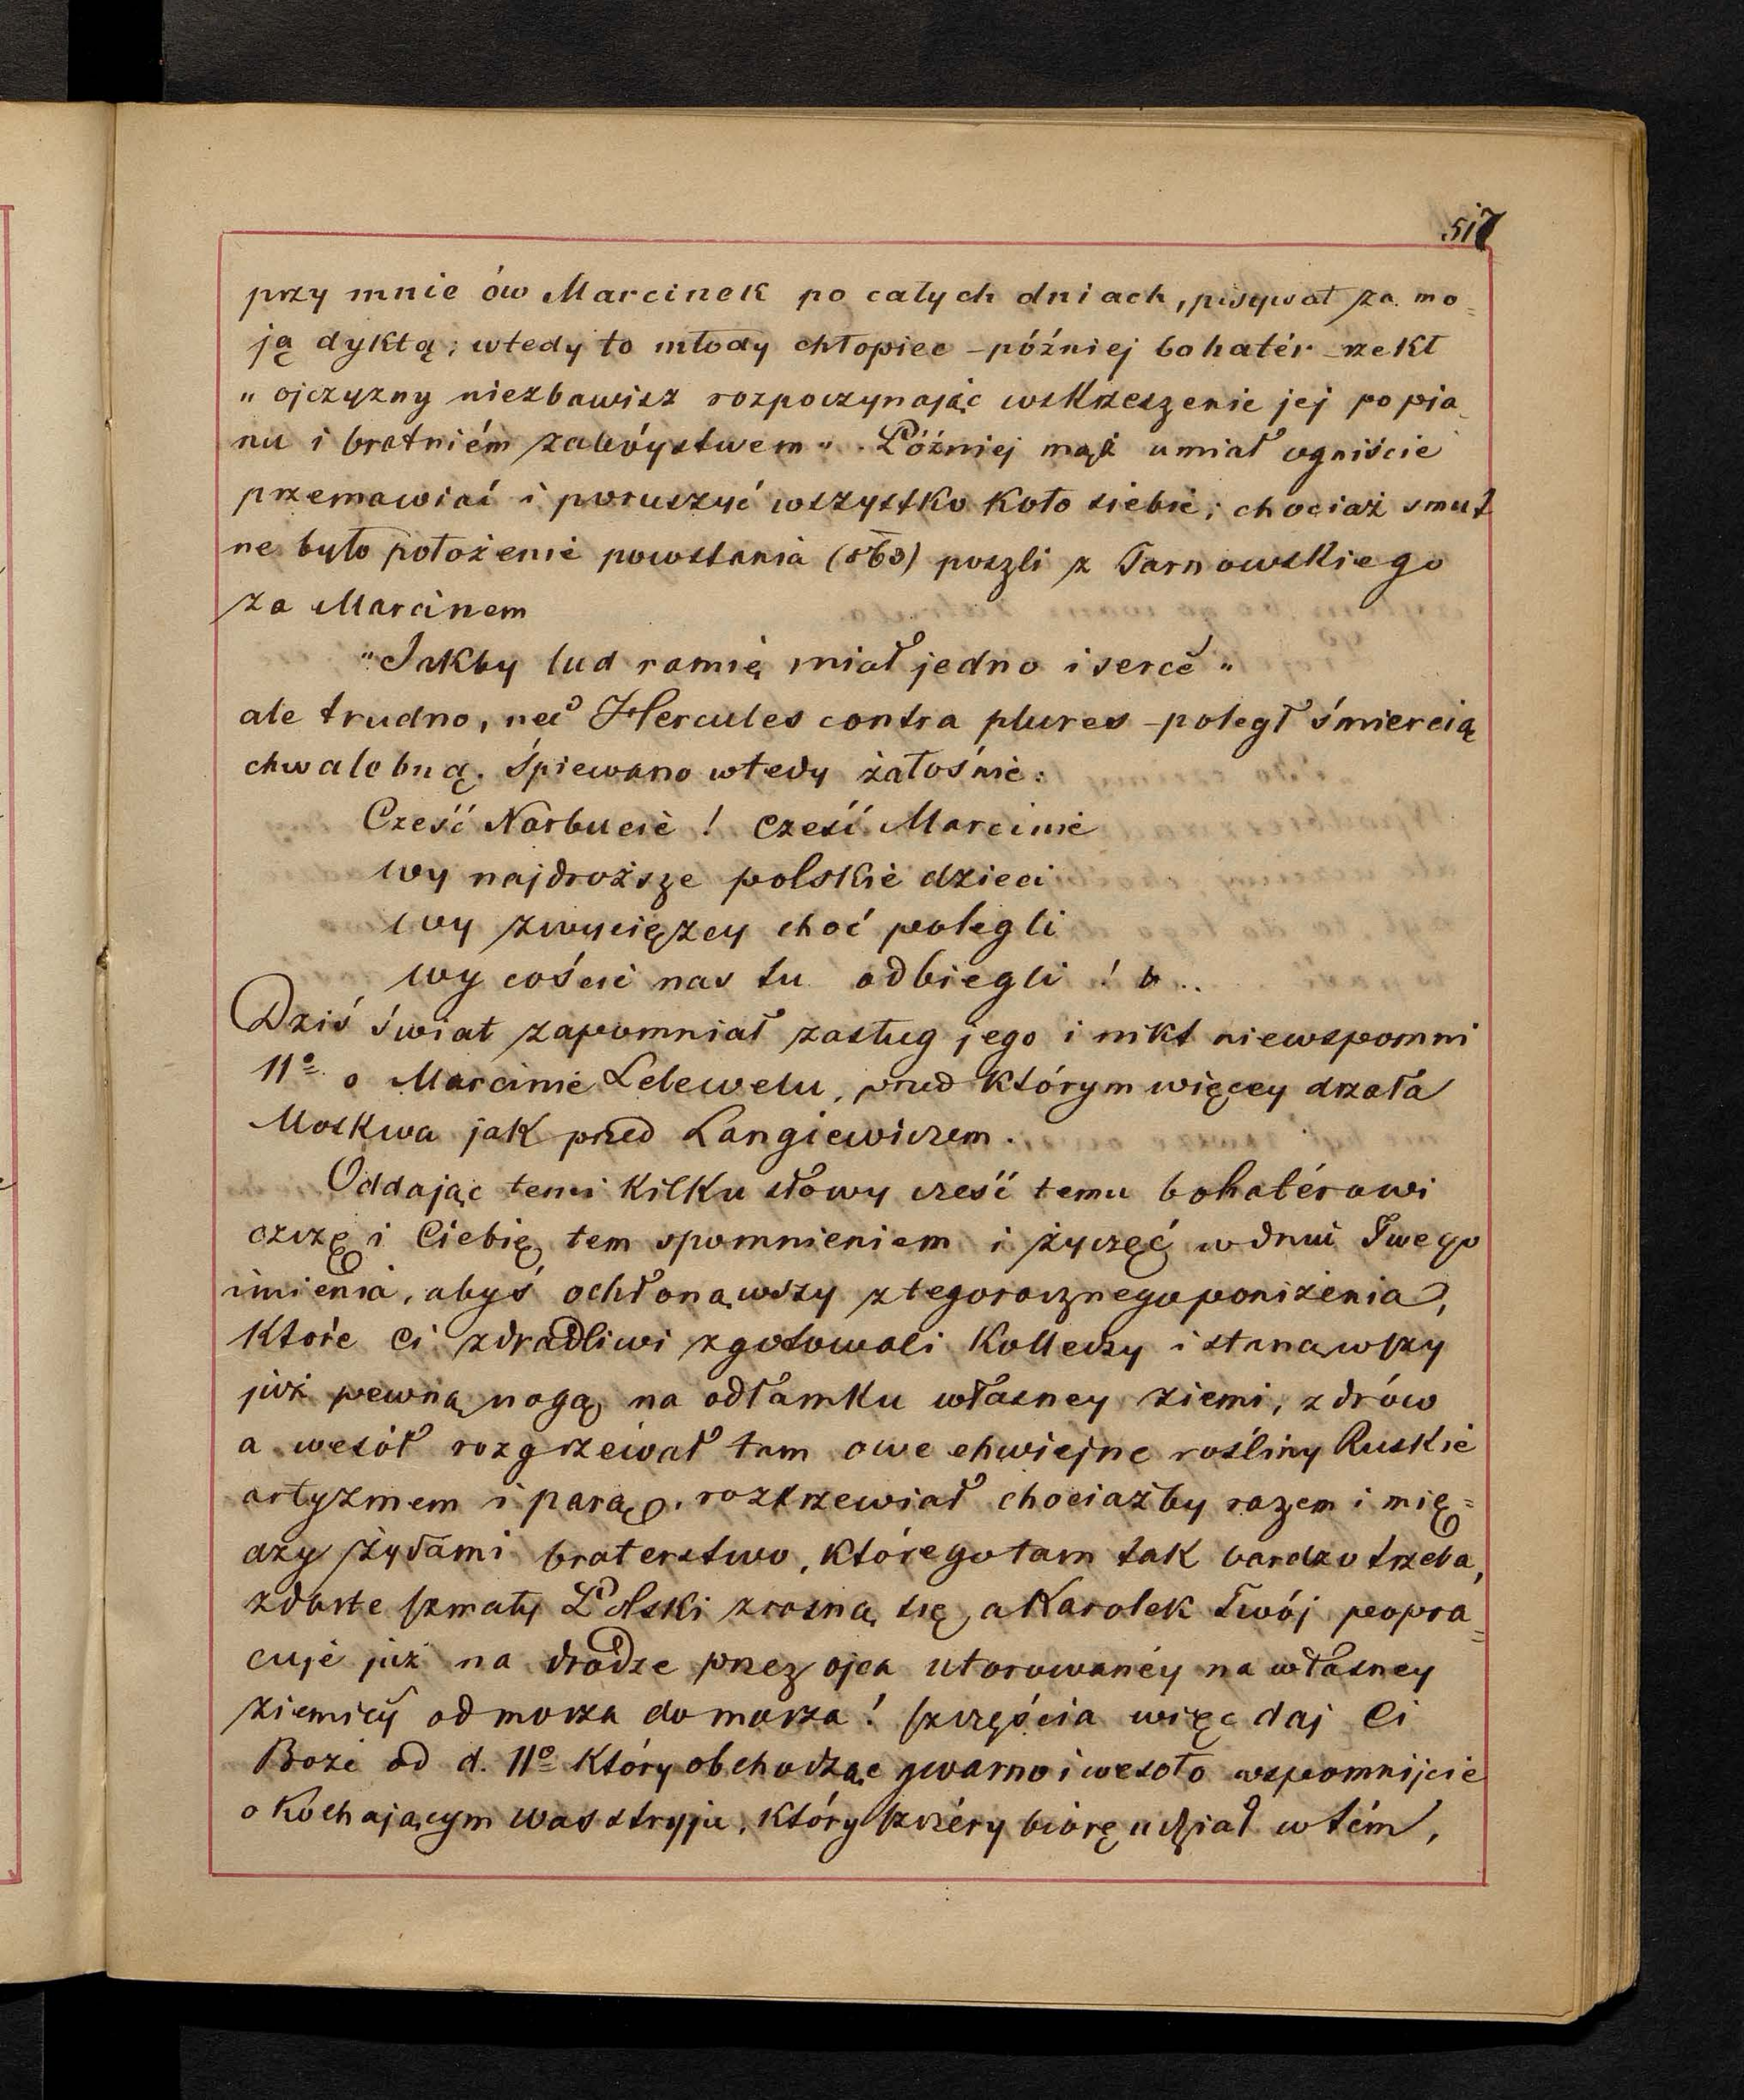 517
przy mnie ów Marcinek po całych dniach, pisywał za mo=
ją dyktą; wtedy to młody chłopiec – później bohatér – rzekł
„ ojczyzny niezbawisz rozpoczynając wskrzeszenie jej po pia
nu i bratniém zabóystwem„. Później mąż umiał ogniście
przemawiać i poruszyć wszystko koło siebie; chociaż smut
ne było położenie powstania (863) poszli z Tarnowskiego
za Marcinem
„Jakby lud ramię miał jedno i serce„
ale trudno, nec Hercules contra plures – poległ śmiercią
chwalebną. Śpiewano wtedy żałośnie:
Cześć Narbucie ! cześć Marcinie
wy najdroższe polskie dzieci
wy zwycięzcy choć polegli
wy coście nas tu odbiegli !
Dziś świat zapomniał zasług jego i nikt niewspomni
11º o Marcinie Lelewelu, przed którym więcey drżała
Moskwa jak przed Langiewiczem.
Oddając temi kilku słowy cześć temu bohatérowi
czczę i Ciebię tem spomnieniem i życzęć w dniu Twego
imienia, abyś ochłonąwszy z tegorocznego poniżenia,
które ci zdradliwi zgotowali kolledzy i stanąwszy
już pewną nogą na odłamku własney ziemi, zdrów
a wesół rozgrzéwał tam owe chwiejne rośliny Ruskie
artyzmem i parą, rozkrzewiał chociażby razem i mię=
dzy żydami braterstwo, którego tam tak bardzo trzeba,
zdarte szmaty Polski zrosną się, a Karolek twój popra=
cuje już na drodze przez ojca utorowanéy na własney
ziemicy od morza do morza ! szczęścia więc daj Ci
Boże od d. 11º który obchodząc gwarno i wesoło wspomnijcie
o kochającym was stryju, który szczéry biorę udział w tém,